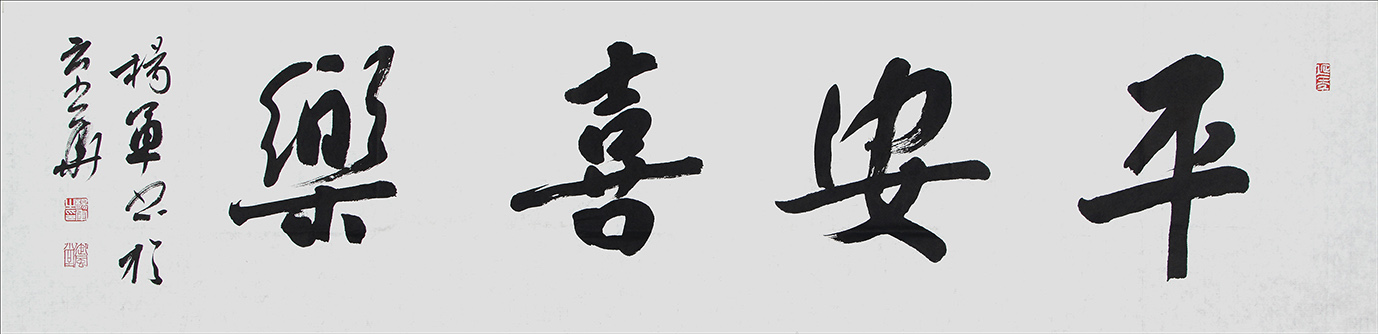 平安喜樂
楊軍書於